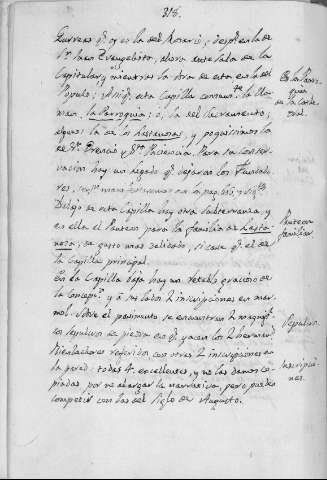 318.
Zurrera q.e oy es la del Rosario; despues la de
S.n Juan Evangelista, ahora ante sala de la
Capitular, y mientras la otra de esta en la del
Populo; Assi q.e esta Capilla comunm.te la lla-
man, la Parroquia; o, la del Sacramento,
algunos la de los Lastanosas, y poquissimos la
de S.n Orencio y S.ta Paciencia. Para su conser-
vacion hay un legado q.e dejaron los Fundado-
res,
Debajo de esta Capilla hay otra subterranea, y
es ella el Panteon para la familia de Lasta-
nosa; de gusto mas delicado, si cave q.e el de
la Capilla principal.
En la Capilla baja hay un retablo gracioso de
la Concep.n y á sus lados 2 inscripciones en mar-
mol. Sobre el pavimento se encuentran 2 magnifi-
cos sepulcros de piedra en q.e yacen los 2 herman.s
referidos con otras 2 inscripciones en
la pared: todas 4. excelentes, y no las damos co-
piadas por no alargar la narrativa, pero pueden
competir con las del Siglo de Augusto.
Es la Parro-
quia
de la Cate-
dral.
Panteon
familiar
Sepulcros
Inscripcio-
nes.